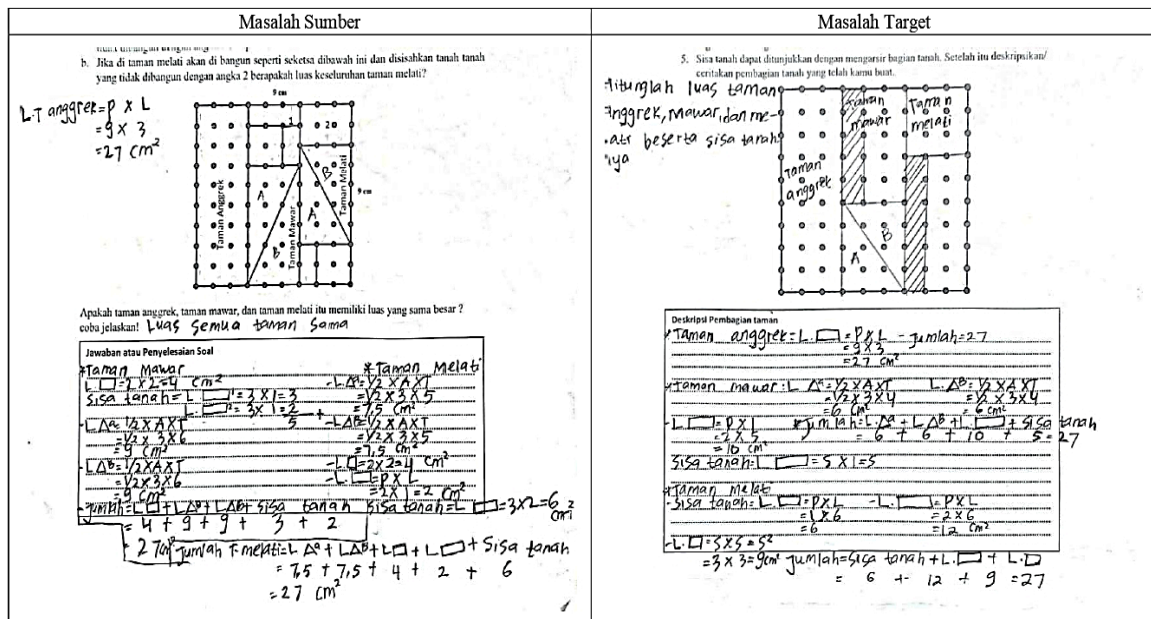 Masalah Sumber
b. Jika di taman melati akan di bangun seperti seketsa dibawah ini dan disisahkan tanah tanah
yang tidak dibangun dengan angka 2 berapakah luas keseluruhan taman melati?
L.T anggrek = P x L
= 9 x 3
= 27 cm²
9 cm
1
2
B
A
A
B
9 cm
Taman Anggrek
Taman Mawar
Taman Melati
Apakah taman anggrek, taman mawar, dan taman melati itu memiliki luas yang sama besar ?
coba jelaskan! Luas semua taman sama
Jawaban atau Penyelesaian Soal
*Taman Mawar
L □ = 2 x 2 = 4 cm²
Sisa tanah = L □¹ = 3 x 1 = 3
L □² = 3 x 1 = 2 +
5
- L Δa = 1/2 x A x T
= 1/2 x 3 x 6
= 9 cm²
- L ΔB = 1/2 x A x T
= 1/2 x 3 x 6
= 9 cm²
- Jumlah = L □ + L Δa + L ΔB + sisa tanah
= 4 + 9 + 9 + 3 + 2
= 27 cm²
* Taman Melati
- L Δa = 1/2 x A x T
= 1/2 x 3 x 5
= 7,5 cm²
- L ΔB = 1/2 x A x T
= 1/2 x 3 x 5
= 7,5 cm²
- L □ = 2 x 2 = 4 cm²
- L. □ = P x L
= 2 x 1 = 2 cm²
Sisa tanah = L □ = 3 x 2 = 6 cm²
Jumlah T. melati = L Δa + L ΔB + L □ + L □ + Sisa tanah
= 7,5 + 7,5 + 4 + 2 + 6
= 27 cm²
Masalah Target
5. Sisa tanah dapat ditunjukkan dengan mengarsir bagian tanah. Setelah itu deskripsikan/
ceritakan pembagian tanah yang telah kamu buat.
Hitunglah luas taman
Anggrek, Mawar, dan me-
lati beserta sisa tanah
nya
Taman mawar
Taman melati
Taman anggrek
A
B
Deskripsi Pembagian taman
*Taman anggrek = L. □ = P x L - Jumlah = 27
= 9 x 3
= 27 cm²
*Taman mawar = L Δa = 1/2 x A x T L. ΔB = 1/2 x A x T
= 1/2 x 3 x 4 = 1/2 x 3 x 4
= 6 cm² = 6 cm²
- L □ = P x L *Jumlah = L. Δa + L ΔB + L. □ + sisa tanah
= 2 x 5 = 6 + 6 + 10 + 5 = 27
= 10 cm²
Sisa tanah = L □ = 5 x 1 = 5
*Taman melati
- Sisa tanah = L □ = P x L - L. □ = P x L
= 1 x 6 = 2 x 6
= 6 = 12 cm²
- L. □ = S x S = S²
= 3 x 3 = 9 cm² Jumlah = sisa tanah + L. □ + L. □
= 6 + 12 + 9 = 27